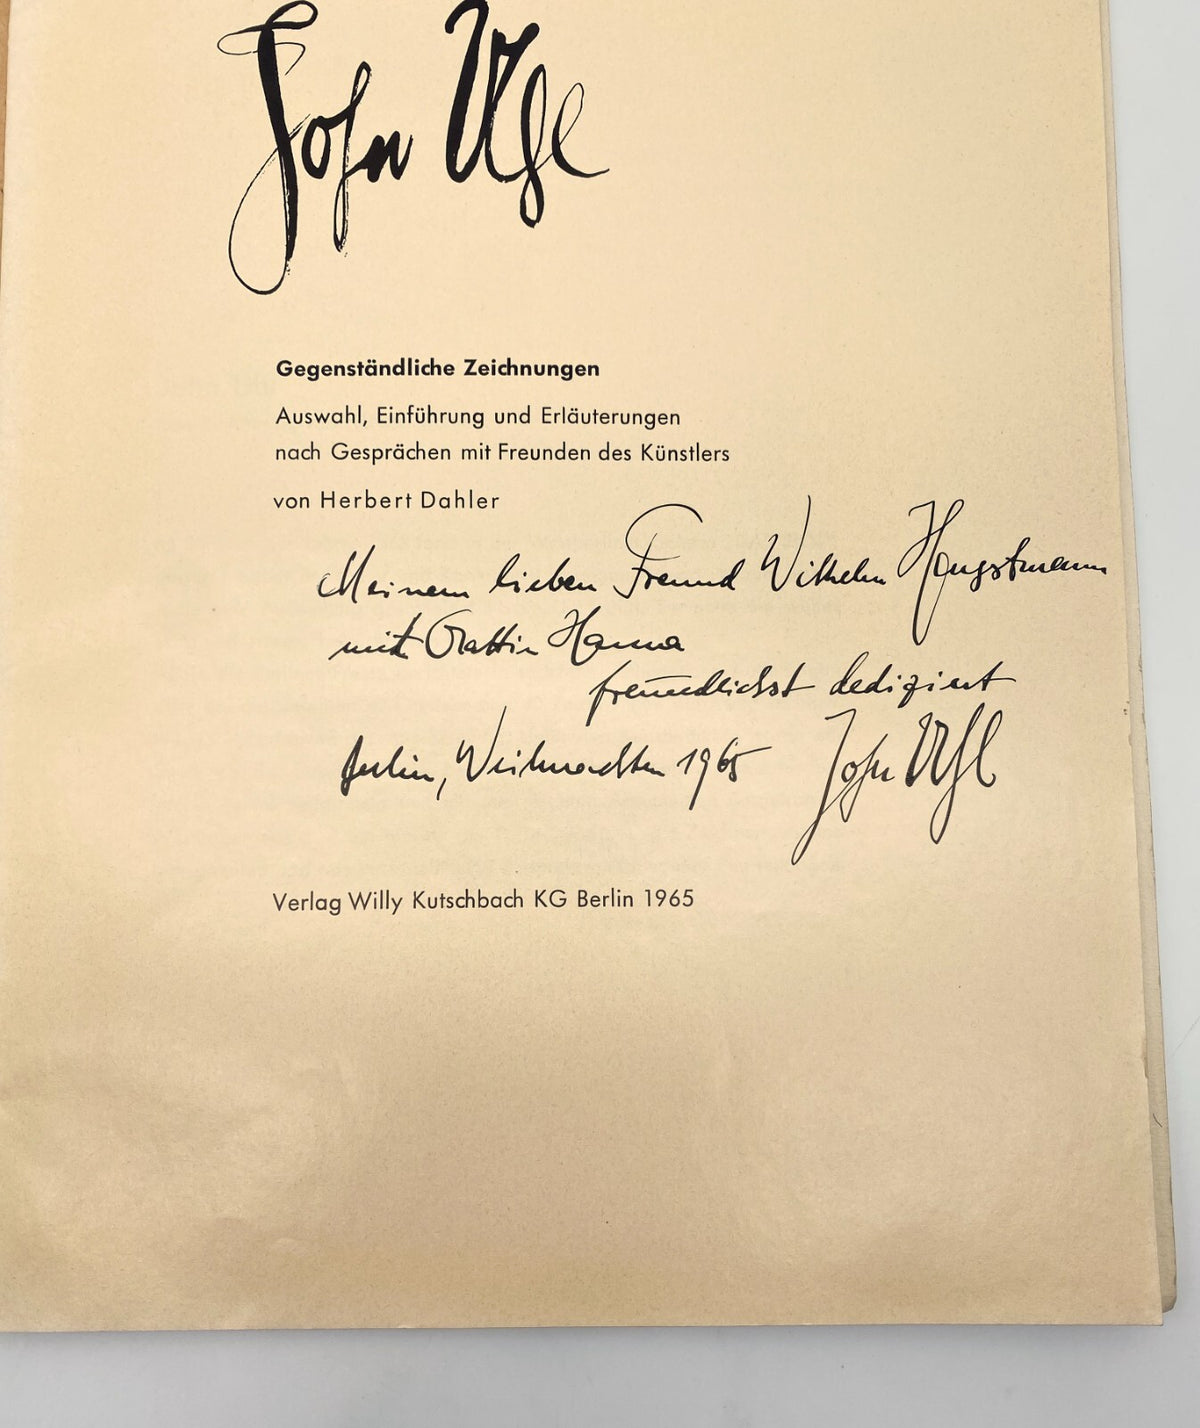 John Uhl
Gegenständliche Zeichnungen
Auswahl, Einführung und Erläuterungen
nach Gesprächen mit Freunden des Künstlers
von Herbert Dahler
Meinem lieben Freund Wilhelm
mit Gattin Hanna
freundlichst dediziert
Berlin, Weihnachten 1965 John Uhl
Verlag Willy Kutschbach KG Berlin 1965